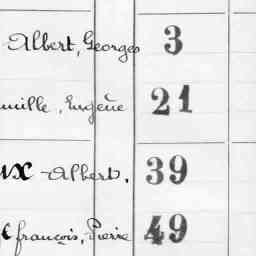 Albert, Georges 3
Eugène 21
ux Albert. 39
françois, Pierre 49